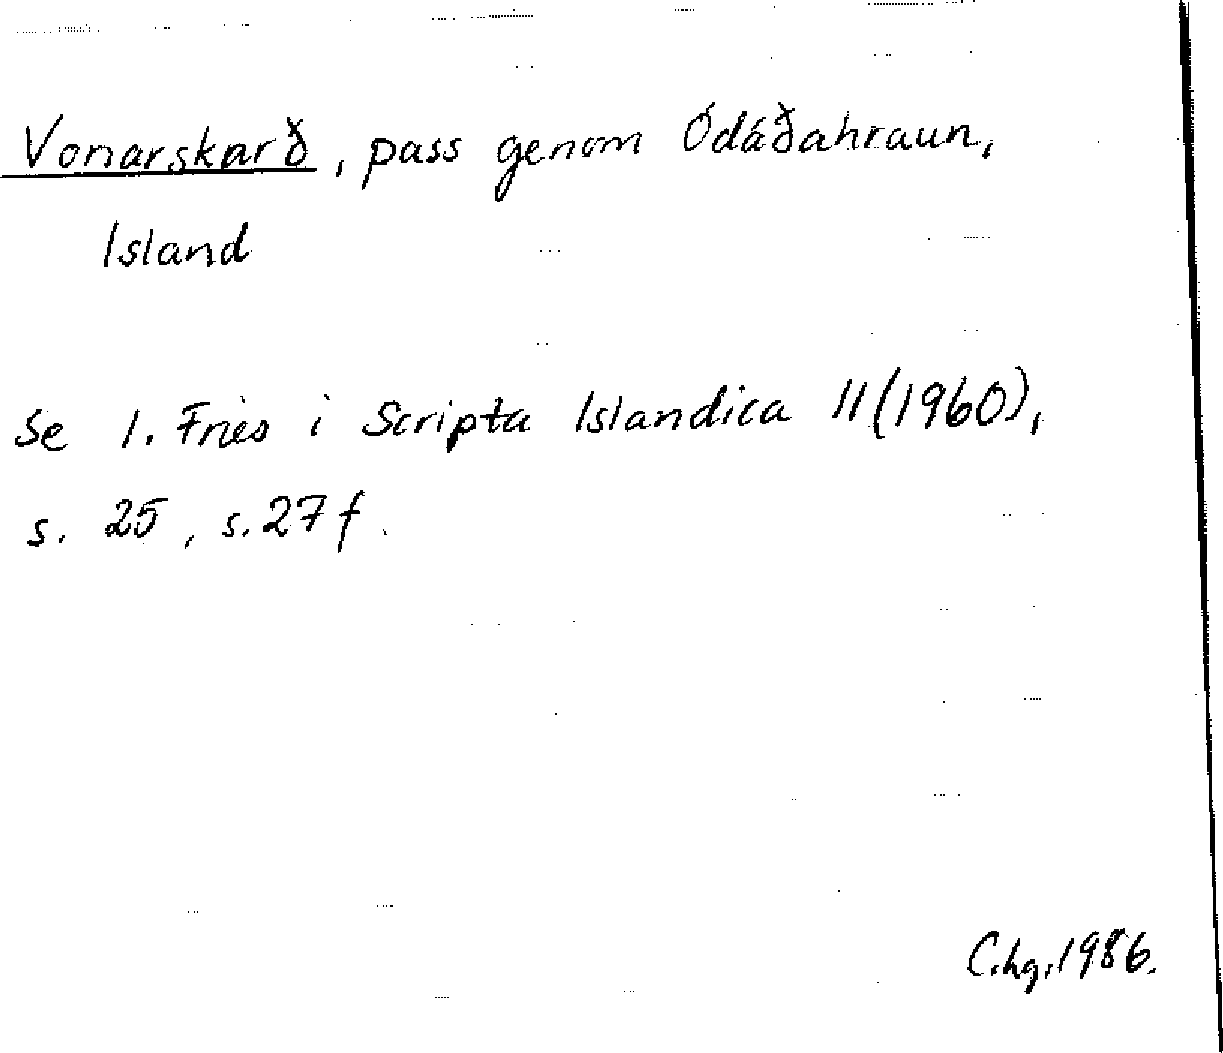 Vonarskarð, pass genom Ódáðahraun,
Island
Se I. Fries i Scripta Islandica 11(1960),
s. 25, s. 27 f.
C.hg. 1986.